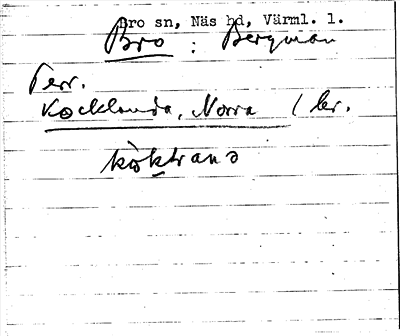 Bro sn, Näs hd, Värml. l.
Bro : Bergman
Terr.
Kocklanda, Norra / kr.
köktrana